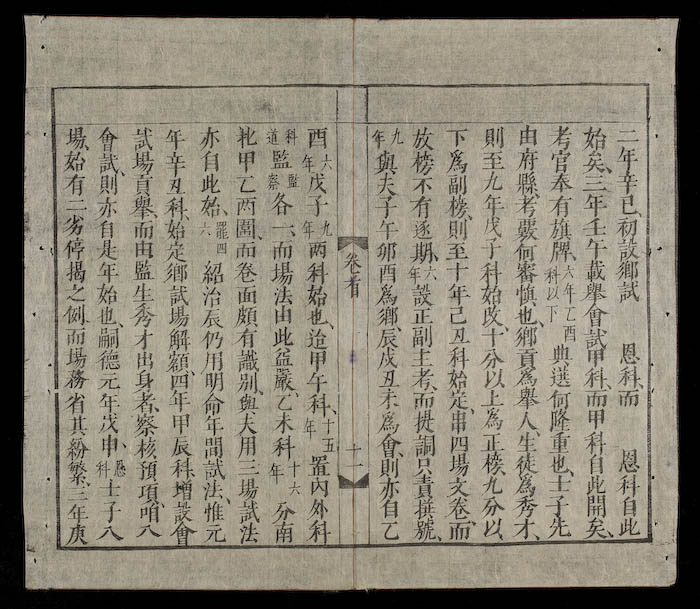 二年辛巳、初設鄉試　恩科、而　恩科自此
始矣、三年壬午載舉會試甲科、而甲科自此開矣、
考官奉有旗牌、六年乙酉科以下典選何隆重也、士子先
由府縣、考覈何審慎也、鄉貢爲舉人、生徒爲秀才、
則至九年戊子科始改、十分以上爲正榜、九分以
下爲副榜、則至十年己丑科始定、串四場文卷、而
放榜不有逐期、六年設正副主考、而提調只責撰號、
九年與夫子午卯酉爲鄉、辰戌丑未爲會、則亦自乙
卷首
十一
酉六年戊子九年兩科始也、迨甲午科、十五年置內外科
科道監察各一、而場法由此益嚴、乙未科十六年分南
北甲乙兩圍、而卷面頗有識別、與夫用三場試法
亦自此始、罷四六紹治辰仍用明命年間試法、惟元
年辛丑科、始定鄉試場解額、四年甲辰科、增設會
試場貢舉、而由監生秀才出身者、察核預項、咱八
會試、則亦自是年始也、嗣德元年戊申、恩科士子八
場、始有二劣停揭之例、而場務省其紛繁、三年庚